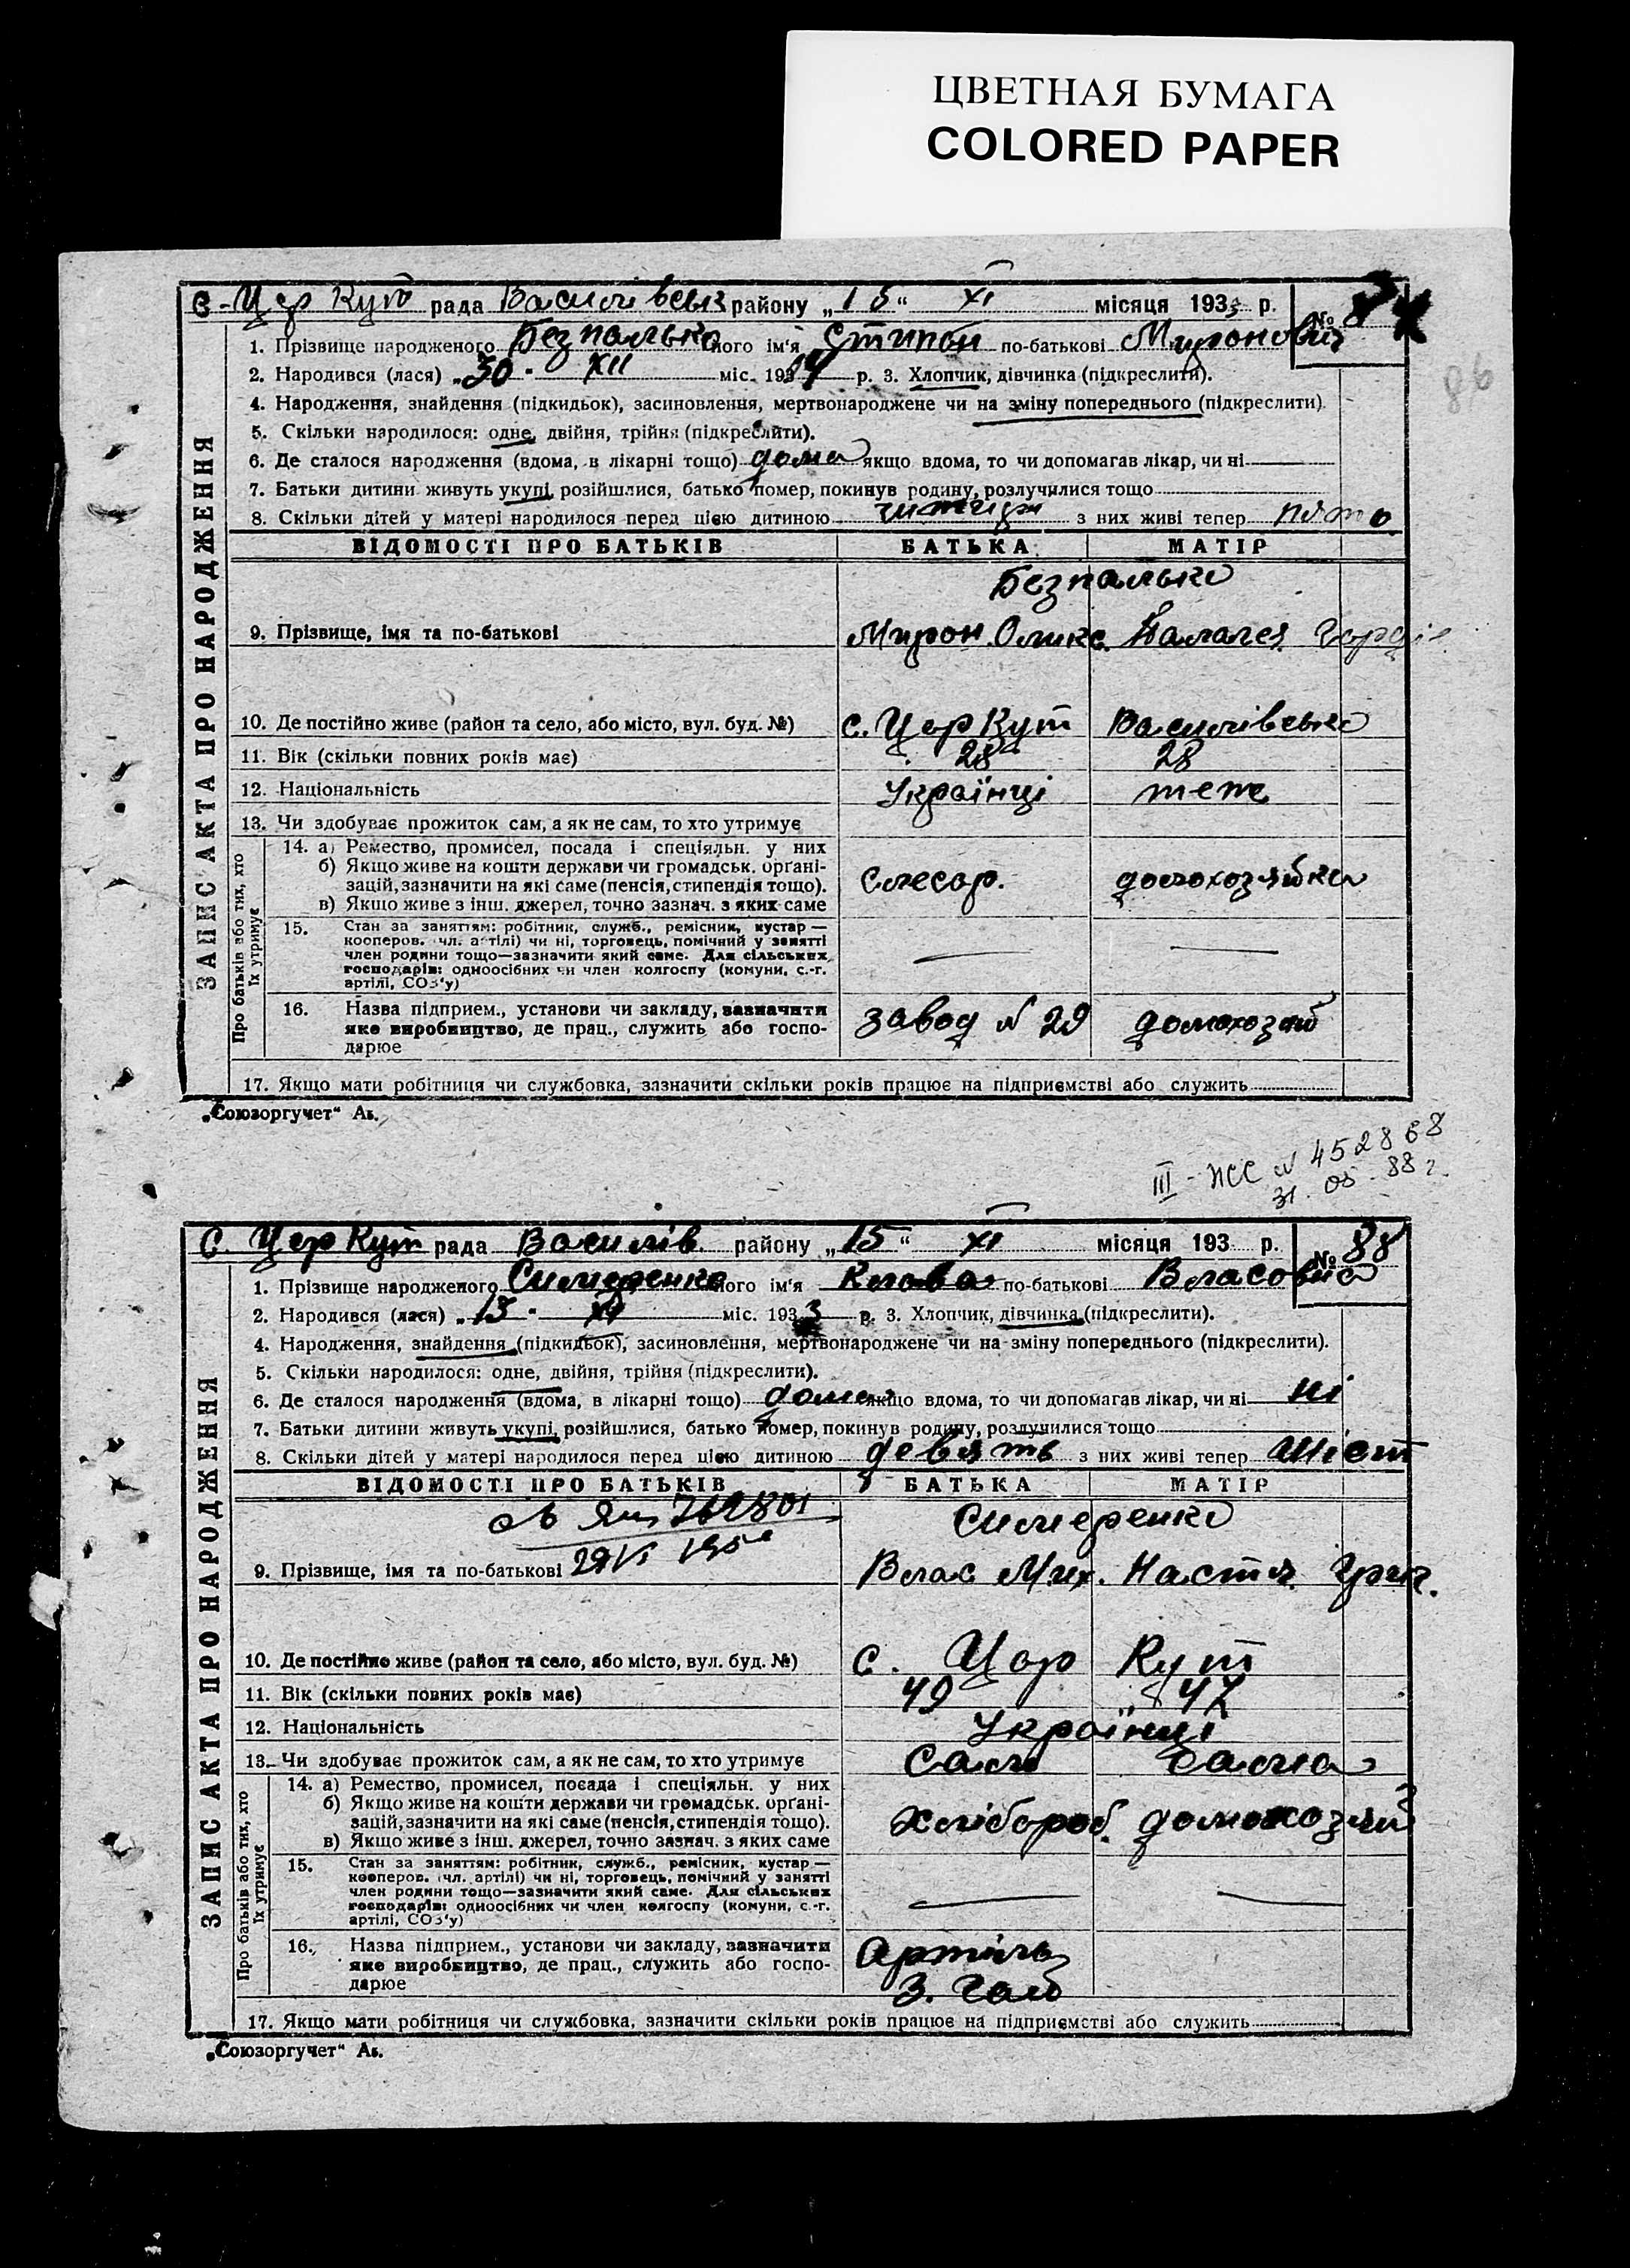 ЦВЕТНАЯ БУМАГА
COLORED PAPER
С-Цар Кут рада Василівськ району „15“ XI місяця 1933 р.
№ 87
1. Прізвище народженого Безпалько його ім'я Стипан по-батькові Миронович
2. Народився (лася) „30“ XII міс. 193 р. 3. Хлопчик, дівчинка (підкреслити).
86
4. Народження, знайдення (підкидьок), засиновлення, мертвонароджене чи на зміну попереднього (підкреслити).
5. Скільки народилося: одне, двійня, трійня (підкреслити).
6. Де сталося народження (вдома, в лікарні тощо) дома якщо вдома, то чи допомагав лікар, чи ні
7. Батьки дитини живуть укупі, розійшлися, батько помер, покинув родину, розлучилися тощо
8. Скільки дітей у матері народилося перед цією дитиною з них живі тепер
ВІДОМОСТІ ПРО БАТЬКІВ БАТЬКА МАТІР
Безпалько
9. Прізвище, імя та по-батькові Мирон Олекс. Палагея Гордіє
10. Де постійно живе (район та село, або місто, вул. буд. №) с. Цар Кут Василівсько
11. Вік (скільки повних років має) 28 28
12. Національність Українці теж
13. Чи здобуває прожиток сам, а як не сам, то хто утримує
14. а) Ремество, промисел, посада і спеціяльн. у них
б) Якщо живе на кошти держави чи громадськ. органі-
зацій, зазначити на які саме (пенсія, стипендія тощо).
в) Якщо живе з інш. джерел, точно зазнач. з яких саме
Слесар. домохозяйка
15. Стан за заняттям: робітник, служб., ремісник, кустар —
кооперов. чл. артілі) чи ні, торговець, помічний у занятті
член родини тощо—зазначити який саме. Для сільських
господарів: одноосібних чи член колгоспу (комуни, с.-г.
артілі, СОЗ'у)
16. Назва підприєм., установи чи закладу, зазначити
яке виробництво, де прац., служить або госпо-
дарює
Завод № 29 домохозяй
17. Якщо мати робітниця чи службовка, зазначити скільки років працює на підприємстві або служить
ЗАПИС АКТА ПРО НАРОДЖЕННЯ
Про батьків або тих, хто
їх утримує
„Союзоргучет“ Ль.
III-ЖС № 452868
31.05.88 г.
С. Цар Кут рада Василів. району „15“ XI місяця 193 р.
№ 88
1. Прізвище народженого Симеренко його ім'я Клава по-батькові Власовна
2. Народився (лася) „13“ XI міс. 1933 р. 3. Хлопчик, дівчинка (підкреслити).
4. Народження, знайдення (підкидьок), засиновлення, мертвонароджене чи на зміну попереднього (підкреслити).
5. Скільки народилося: одне, двійня, трійня (підкреслити).
6. Де сталося народження (вдома, в лікарні тощо) дома якщо вдома, то чи допомагав лікар, чи ні ні
7. Батьки дитини живуть укупі, розійшлися, батько помер, покинув родину, розлучилися тощо
8. Скільки дітей у матері народилося перед цією дитиною девять з них живі тепер шіст
ВІДОМОСТІ ПРО БАТЬКІВ БАТЬКА МАТІР
Симеренко
9. Прізвище, імя та по-батькові Влас Мих. Настя Григ.
10. Де постійно живе (район та село, або місто, вул. буд. №) с. Цар Кут
11. Вік (скільки повних років має) 49 47
12. Національність Українці
13. Чи здобуває прожиток сам, а як не сам, то хто утримує Сам Сама
14. а) Ремество, промисел, посада і спеціяльн. у них
б) Якщо живе на кошти держави чи громадськ. органі-
зацій, зазначити на які саме (пенсія, стипендія тощо).
в) Якщо живе з інш. джерел, точно зазнач. з яких саме
Хлібороб. домохозяй
15. Стан за заняттям: робітник, служб., ремісник, кустар —
кооперов. чл. артілі) чи ні, торговець, помічний у занятті
член родини тощо—зазначити який саме. Для сільських
господарів: одноосібних чи член колгоспу (комуни, с.-г.
артілі, СОЗ'у)
16. Назва підприєм., установи чи закладу, зазначити
яке виробництво, де прац., служить або госпо-
дарює
Артіль
17. Якщо мати робітниця чи службовка, зазначити скільки років працює на підприємстві або служить
ЗАПИС АКТА ПРО НАРОДЖЕННЯ
Про батьків або тих, хто
їх утримує
„Союзоргучет“ Ль.